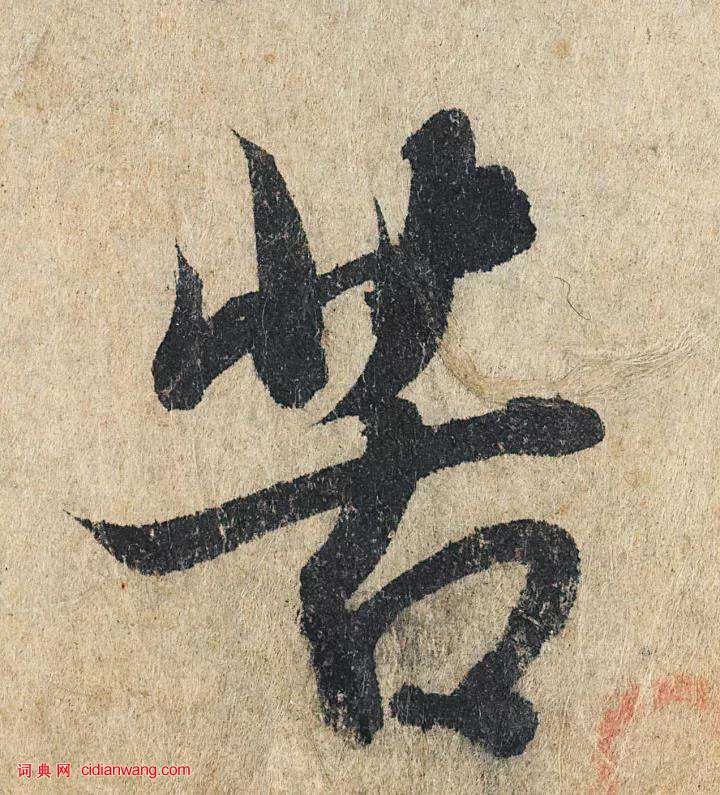 苦
词典网 cidianwang.com